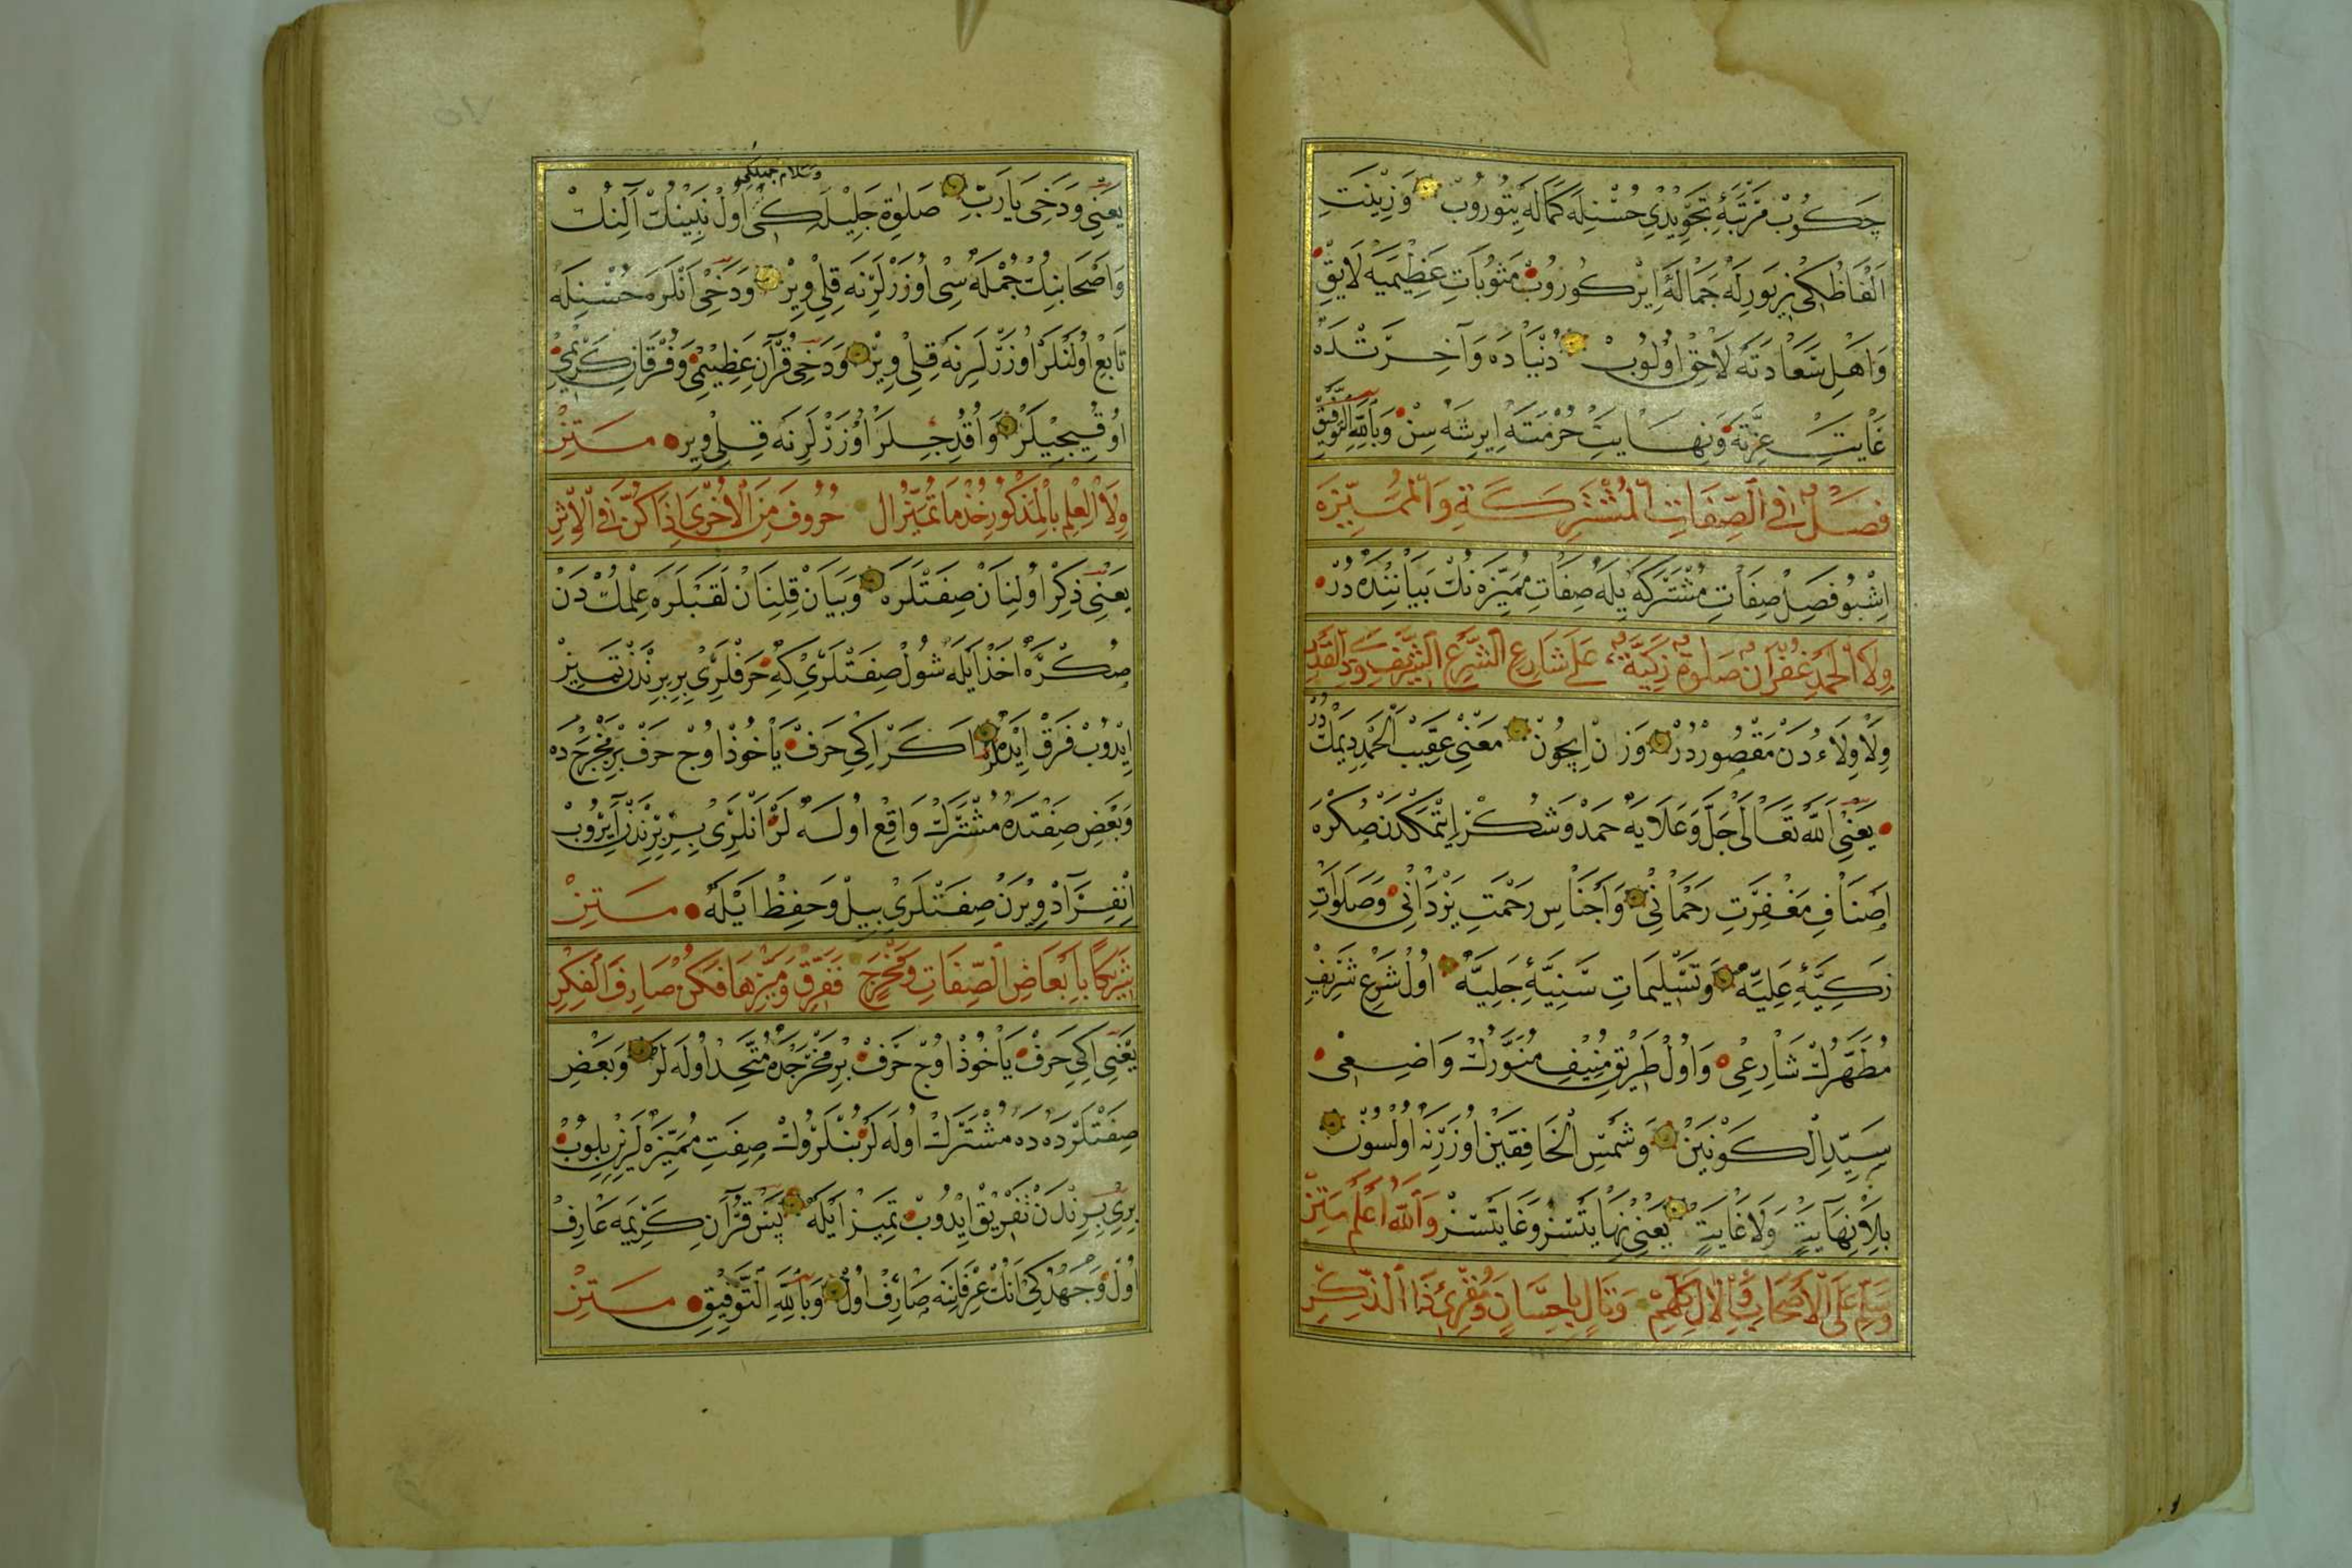 چكوب مرتبهٔ تجويدى حسنله كماله يتوروب وزينت
الفاظكى زيورله جماله ايركوروب مثوبات عظيميه لايق
واهل سعادته لاحق اولوب دنياده وآخرتده
غايت عزته ونهايت حرمته ايرشه سن وبالله التوفيق
فصل فى الصفات المشتركة والمميزه
اشبو فصل صفات مشتركه يله صفات مميزه نك بياننده در
ولاء الحمد غفران صلوة زكية على شارع الشرع الشريف
ولا ولاء دن مقصوردر وزن ايچون معنى عقيب الحمد ديمكدر
يعنى الله تعالى جل وعلايه حمد وشكر ايتمكدن صكره
اصناف مغفرت رحمانى واجناس رحمت يزدانى وصلوات
زكيهٔ عليه وتسليمات سنيهٔ جليه اول شرع شريف
مطهرك شارعى واول طريق منيف منورك واضعى
سيد الكونين وشمس الخافقين اوزرنه اولسون
بلا نهايت ولا غايت يعنى نهايتسز وغايتسز والله اعلم متن
وسلم على الاصحاب والال كلهم وتال باحسان ومقرئ ذا الذكر
وسلام جميلكى
يعنى ودخى يا رب صلوة جليلكى اول نبينك آلنك
واصحابنك جمله سى اوزرلرنه قلى وير ودخى انلره حسنله
تابع اولنلر اوزرلرنه قلى وير ودخى قرآن عظيمى وفرقان كريمى
اوقييجيلر واوقديجيلر اوزرلرنه قلى وير متن
ولاء العلم بالمذكور خذ ما تميز ال حروف من الاخرى اذا كن فى الاثر
يعنى ذكر اولنان صفتلره وبيان قلنان لقبلره علمكدن
صكره اخذ ايله شول صفتلرى كه حرفلرى بربرندن تمييز
ايدوب فرق ايدرلر اكر اكى حرف ياخوذ اوچ حرف بر مخرجده
وبعض صفتده مشترك واقع اولسه لر انلرى بربرندن آيروب
انفراد ويرن صفتلرى بيل وحفظ ايله متن
شريكا بابعاض الصفات ومخرج ففرق وميزها فكن صارف الفكر
يعنى اكى حرف ياخوذ اوچ حرف بر مخرجده متحد اوله لر وبعض
صفتلرده ده مشترك اوله لر بنلروك صفت مميزه لرن بلوب
برى بربرندن تفريق ايدوب تمييز ايله پس قرآن كريمه عارف
اول وجهدكى انك عرفاننه صارف اول وبالله التوفيق متن